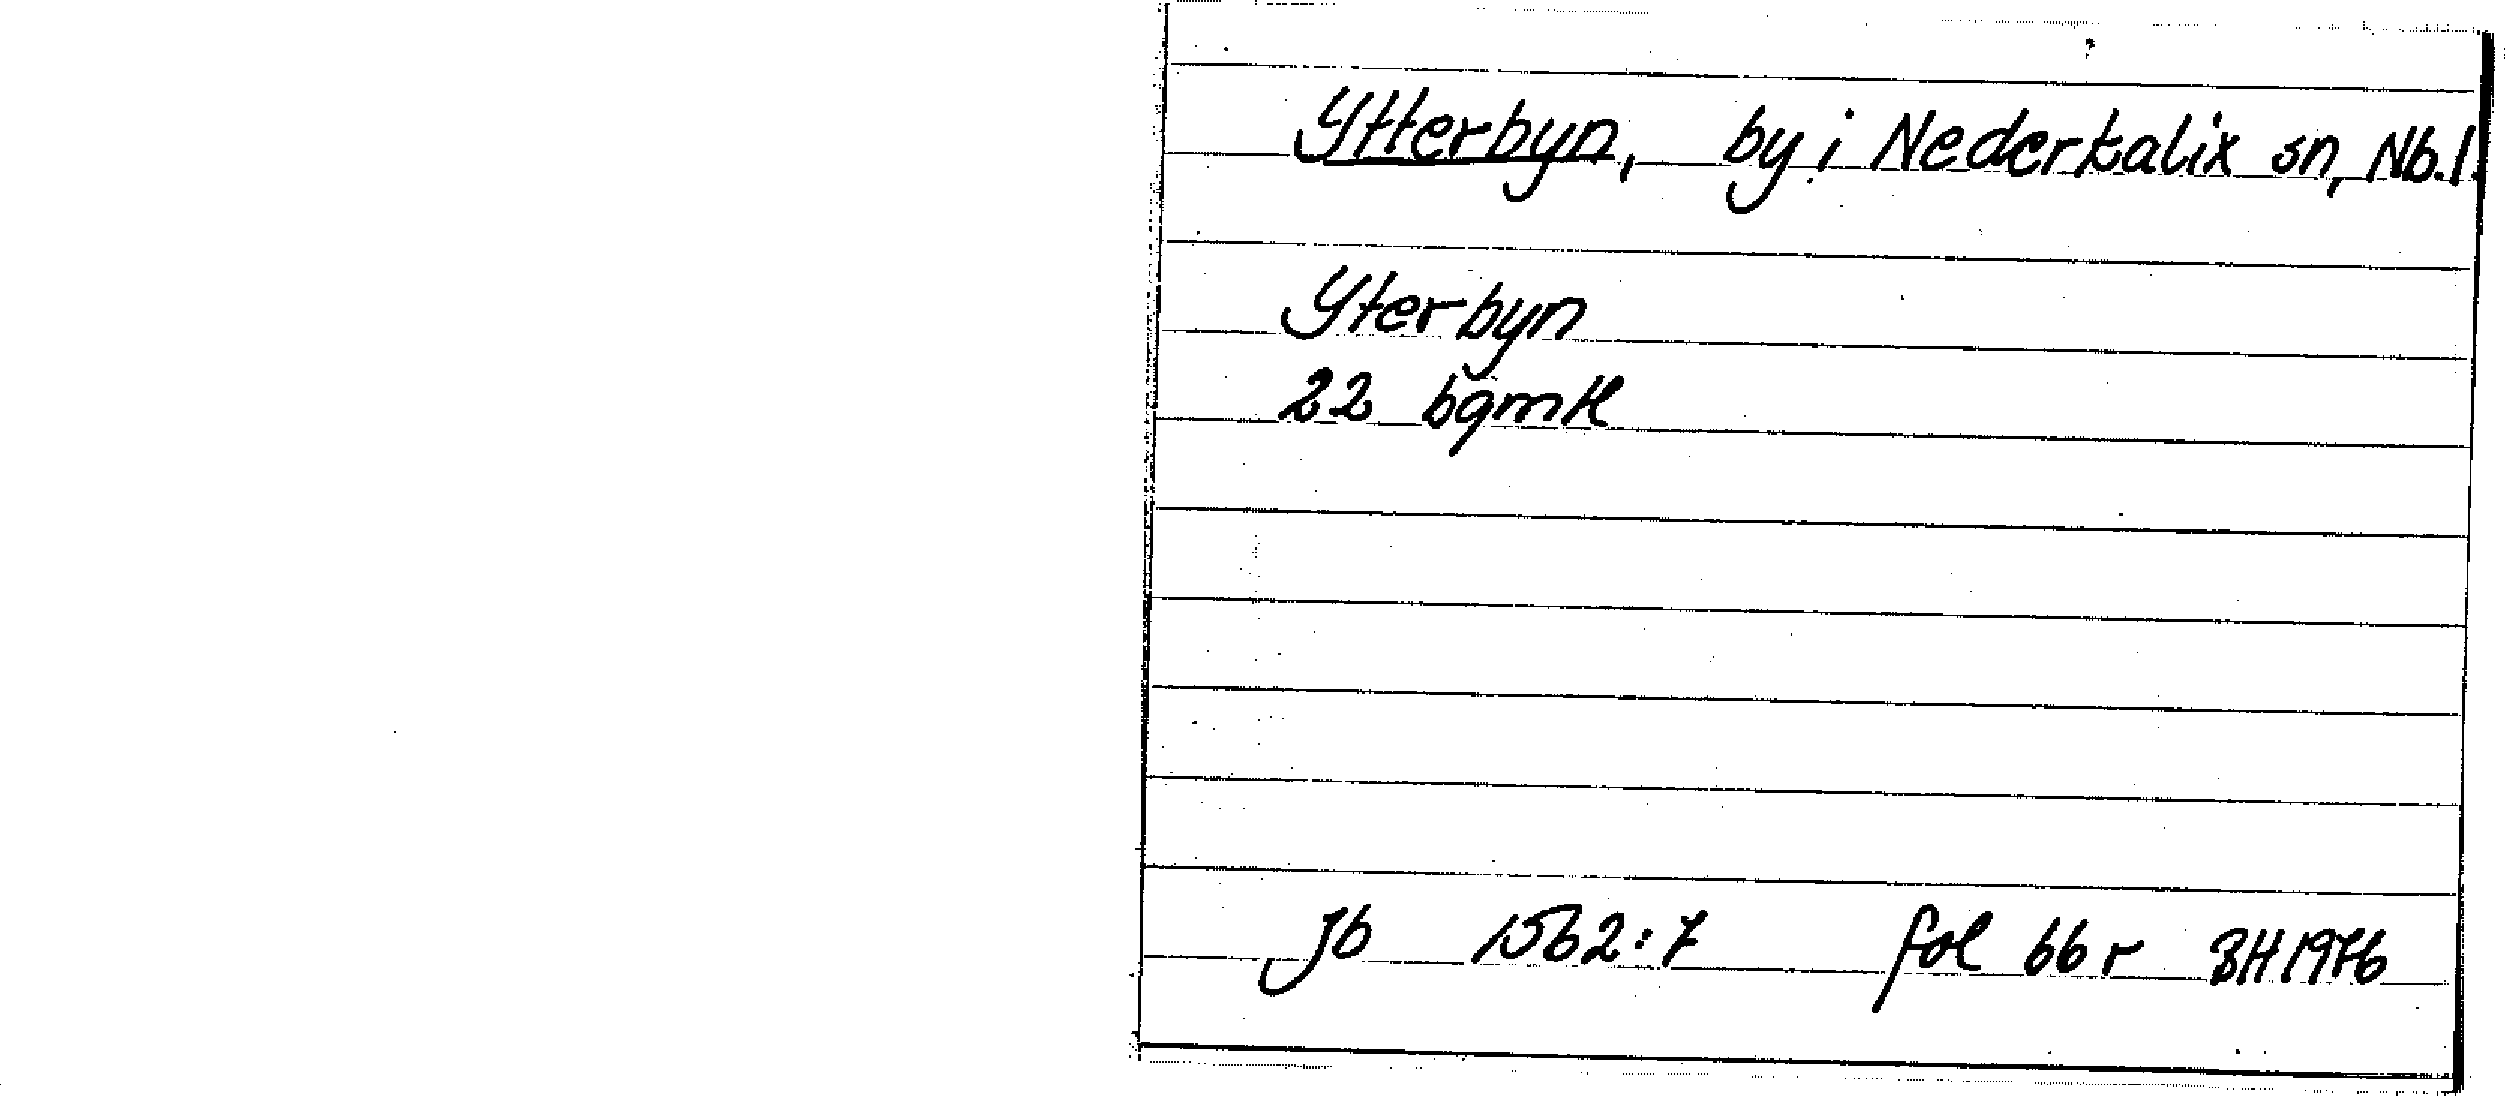 Ytterbyn, by i Nederkalix sn, Nb.l.
Yterbyn
22 bgmk
Jb 1562:7 fol 66 r BH 1976